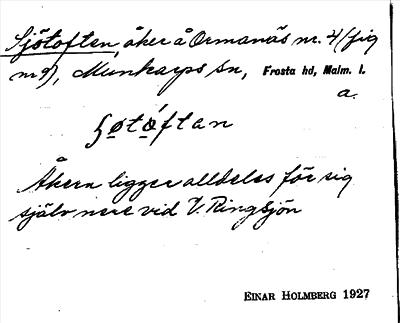 Sjötoften, åker å Ormanäs nr. 4 (fig
nr 9), Munkarps sn, Frosta hd, Malm. l.
a.
ʃøtóftan
Åkern ligger alldeles för sig
själv nere vid V. Ringsjön
EINAR HOLMBERG 1927